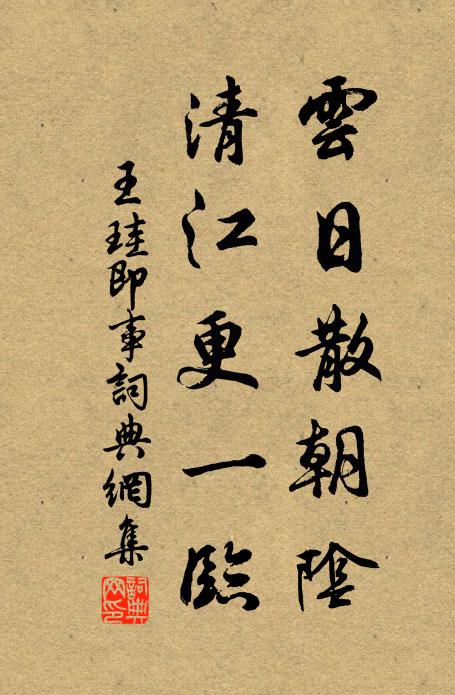 雲日散朝陰
清江更一臨
王珪即事詞典網集
詞典
网印